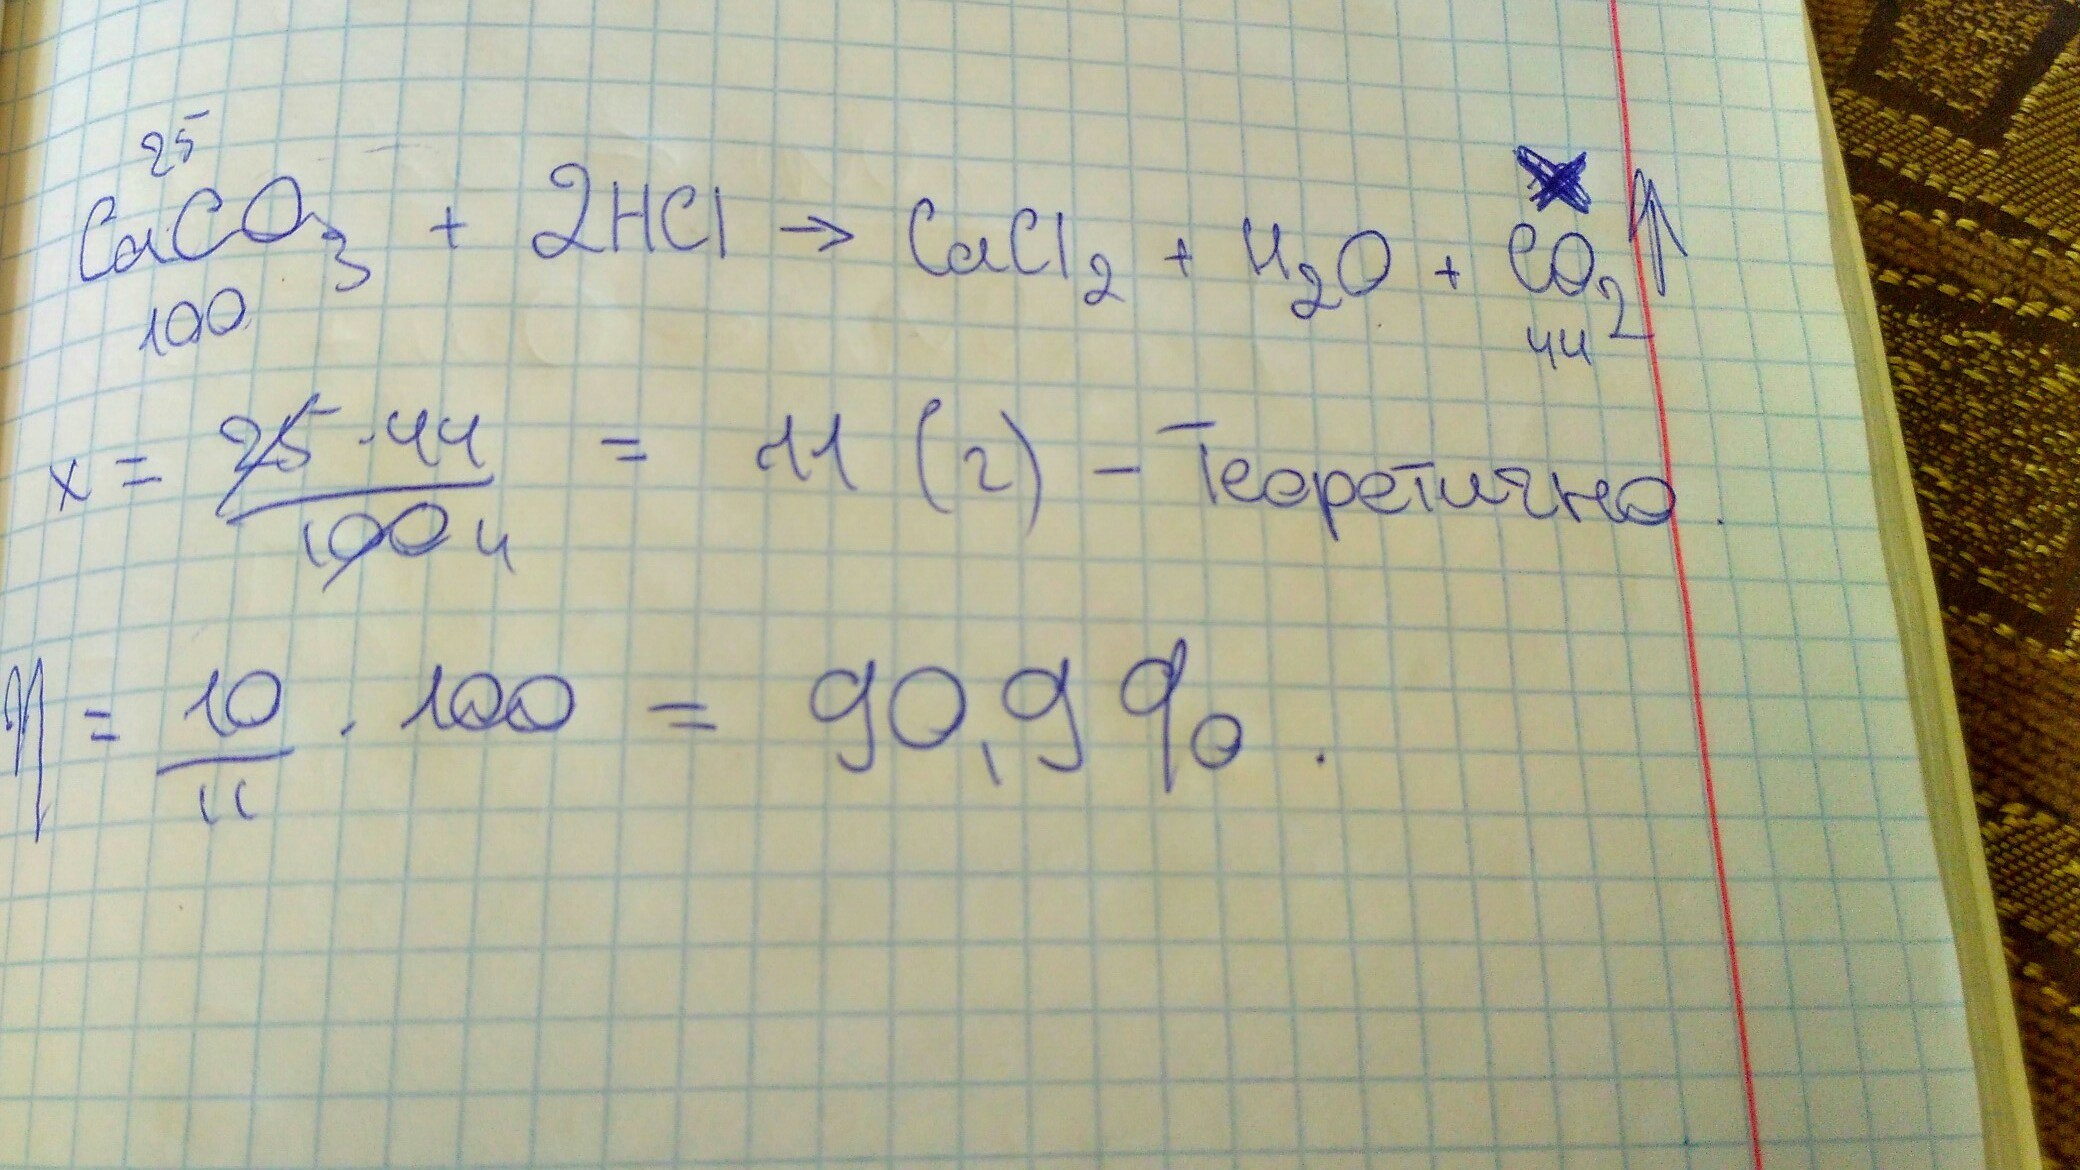 25 x
CaCO3 + 2HCl → CaCl2 + H2O + CO2↑
100 44
x = 25·44 / 100 4 = 11 (г) – Теоретично.
η = 10/11 · 100 = 90,9 %.